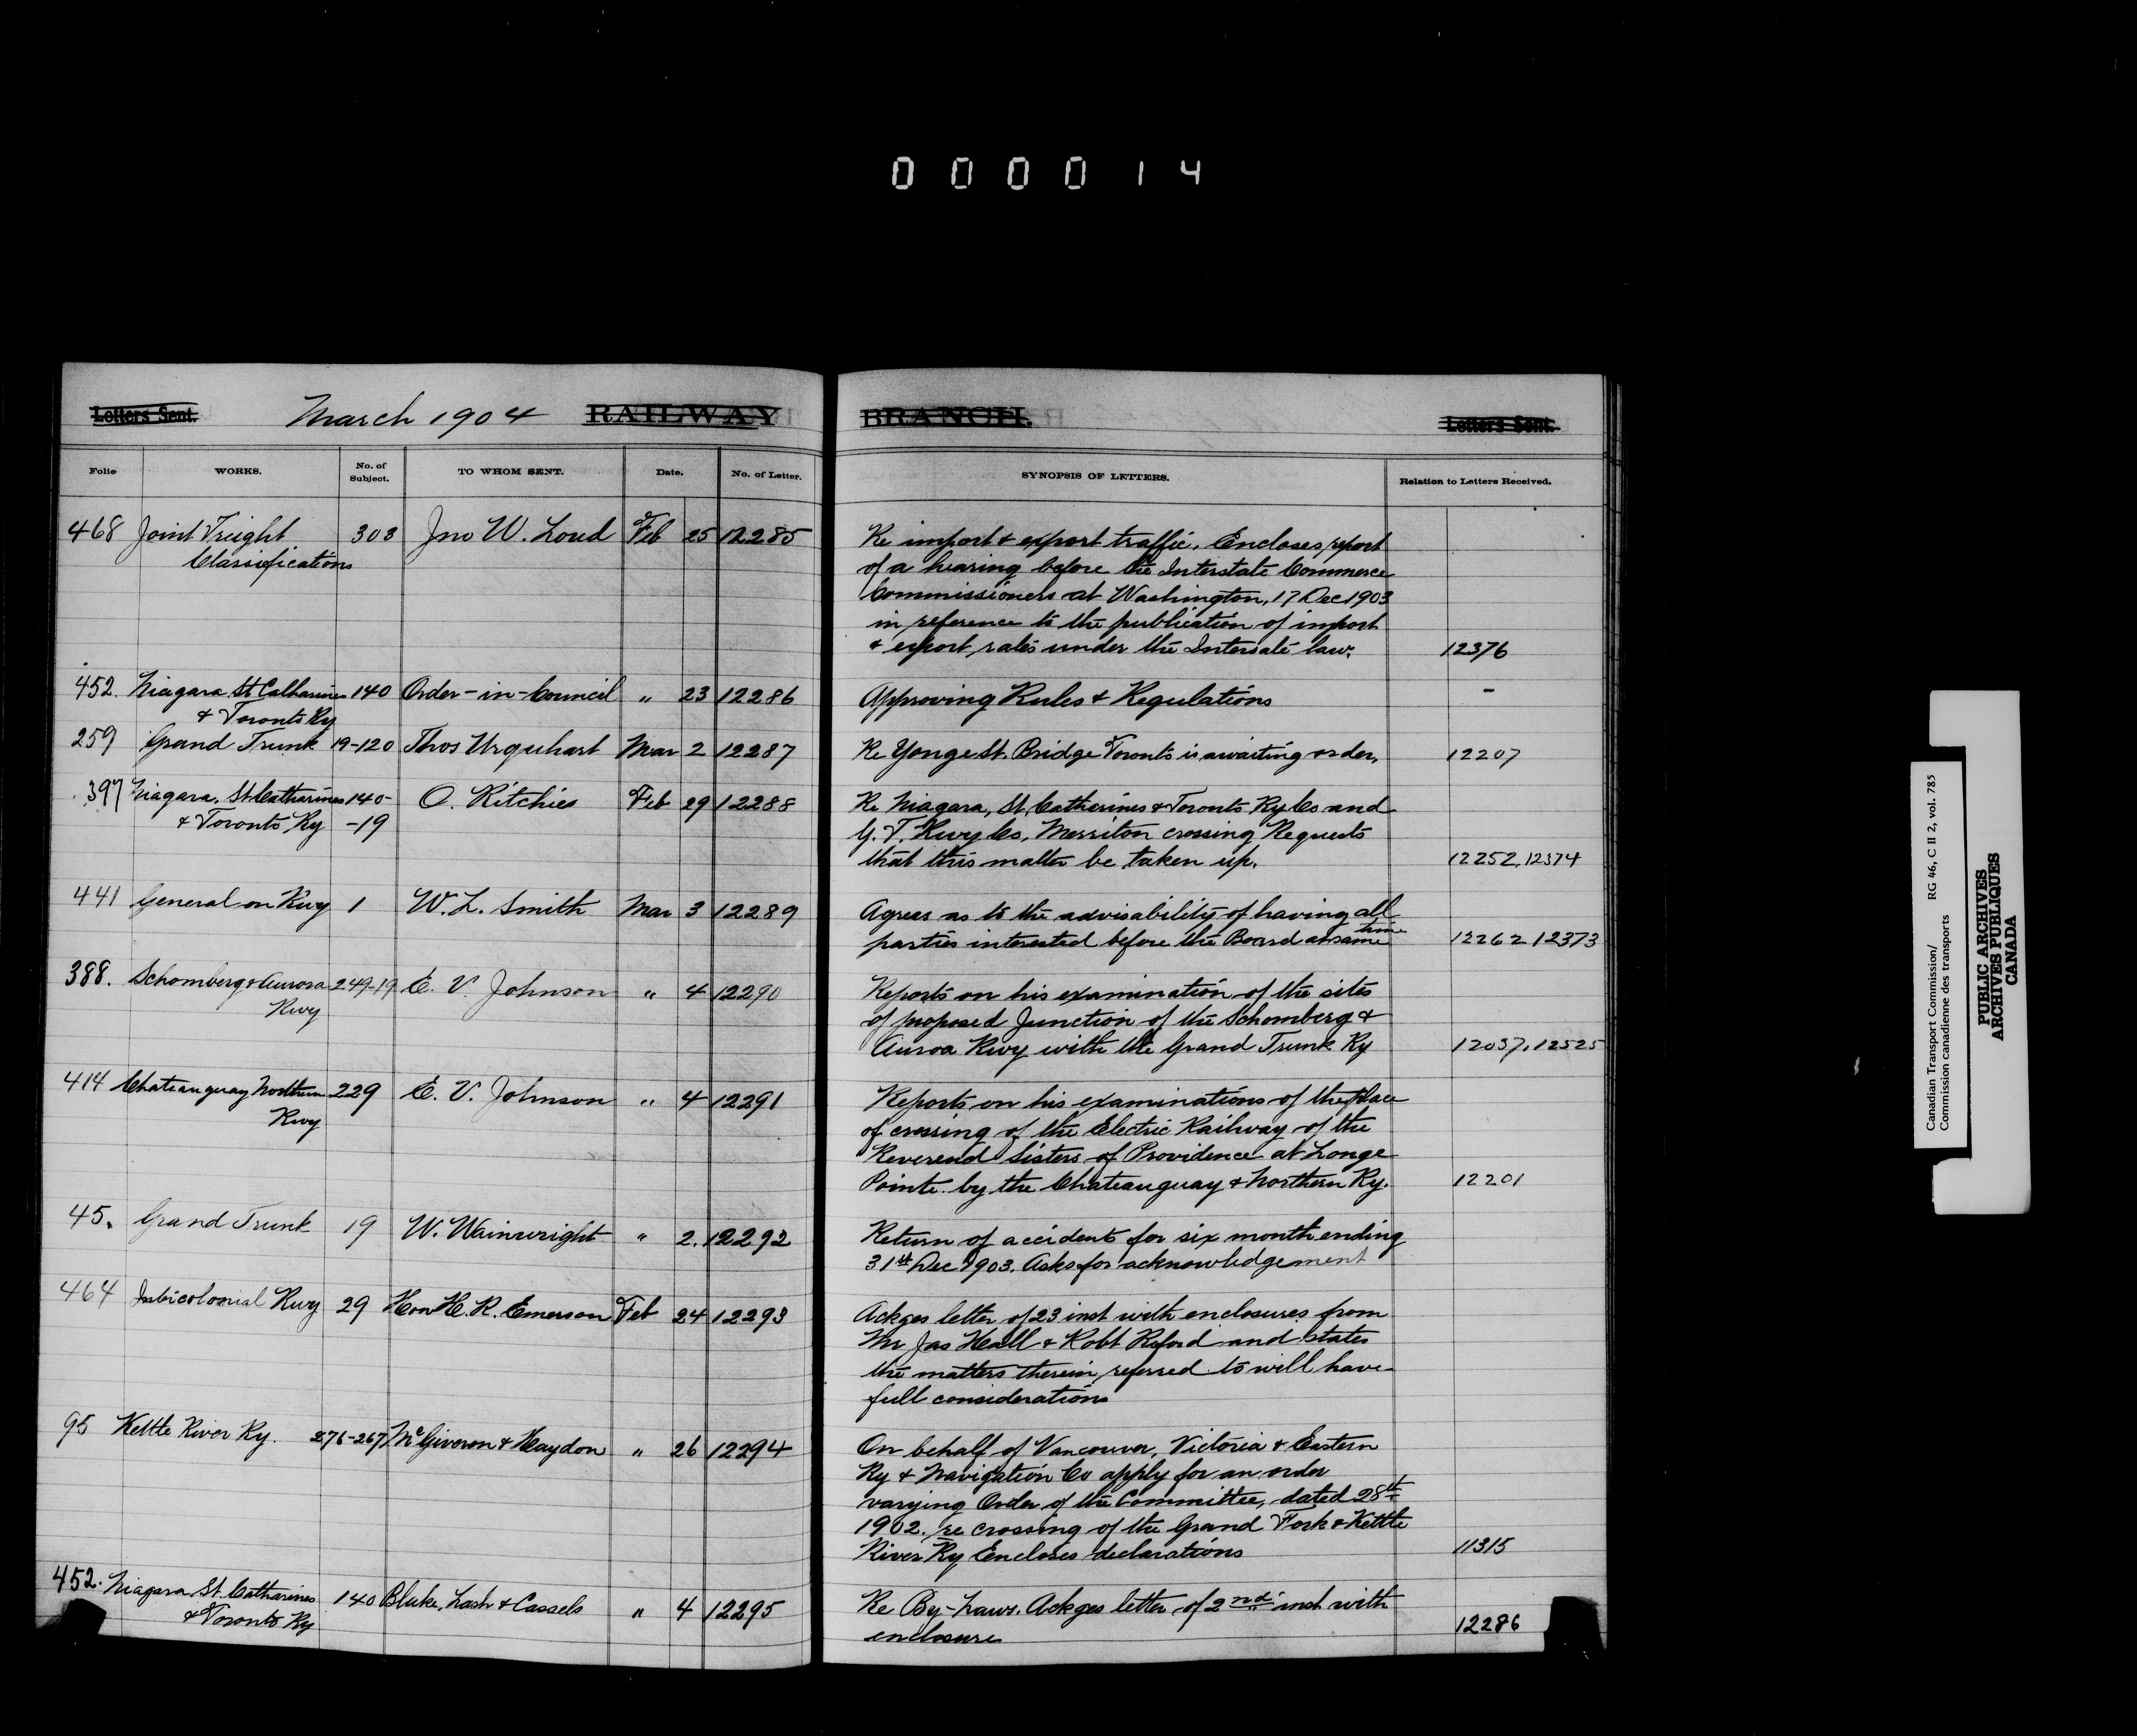 000014
Letters Sent. March 1904 RAILWAY BRANCH. Letters Sent.
Folio WORKS. No. of Subject. TO WHOM SENT. Date. No. of Letter. SYNOPSIS OF LETTERS. Relation to Letters Received.
468 Joint Freight 303 Jno W. Loud Feb 25 12285 Re import & export traffic. Encloses report
Classifications of a hearing before the Interstate Commerce
Commissioners at Washington, 17 Dec 1903
in reference to the publication of import
& export rates under the Intersate law. 12376
452. Niagara St Catharines 140 Order-in-Council " 23 12286 Approving Rules & Regulations -
& Toronto Ry
259 Grand Trunk 19-120 Thos Urquhart Mar 2 12287 Re Yonge St. Bridge Toronto is awaiting order. 12207
397 Niagara, St. Catharines 140- O. Ritchies Feb 29 12288 Re Niagara, St. Catharines & Toronto Ry Co and
& Toronto Ry -19 G. T. Rwy Co, Merriton crossing Requests
that this matter be taken up. 12252, 12374
441 General on Rwy 1 W. L. Smith Mar 3 12289 Agrees as to the advisability of having all
parties interested before the Board at same time 12262 12373
388. Schomberg & Aurora 249-19 E. V. Johnson " 4 12290 Reports on his examination of the sites
Rwy of proposed Junction of the Schomberg &
Auroa Rwy with the Grand Trunk Ry 12037, 12525
414 Chateauguay Northern 229 E. V. Johnson " 4 12291 Reports on his examinations of the place
Rwy of crossing of the Electric Railway of the
Reverend Sisters of Providence at Longe
Pointe by the Chateauguay & Northern Ry. 12201
45. Grand Trunk 19 W. Wainwright " 2. 12292 Return of accidents for six month ending
31st Dec 1903. Asks for acknowledgement
464 Intercolonial Rwy 29 Hon H. R. Emerson Feb 24 12293 Ackges letter of 23 inst with enclosures from
Mr Jas Hall & Robt Reford and states
the matters therein referred to will have
full considerations
95 Kettle River Ry. 276-267 McGiveron & Haydon " 26 12294 On behalf of Vancouver, Victoria & Eastern
Ry & Navigation Co apply for an order
varying Order of the Committee, dated 28th
1902. re crossing of the Grand Fork & Kettle
River Ry Encloses declarations 11315
452. Niagara St. Catharines 140 Blake, Lash & Cassels " 4 12295 Re By-Laws. Ackges letter of 2nd inst with
& Toronto Ry enclosure 12286
Canadian Transport Commission/ RG 46, C II 2, vol. 785
Commission canadienne des transports
PUBLIC ARCHIVES
ARCHIVES PUBLIQUES
CANADA